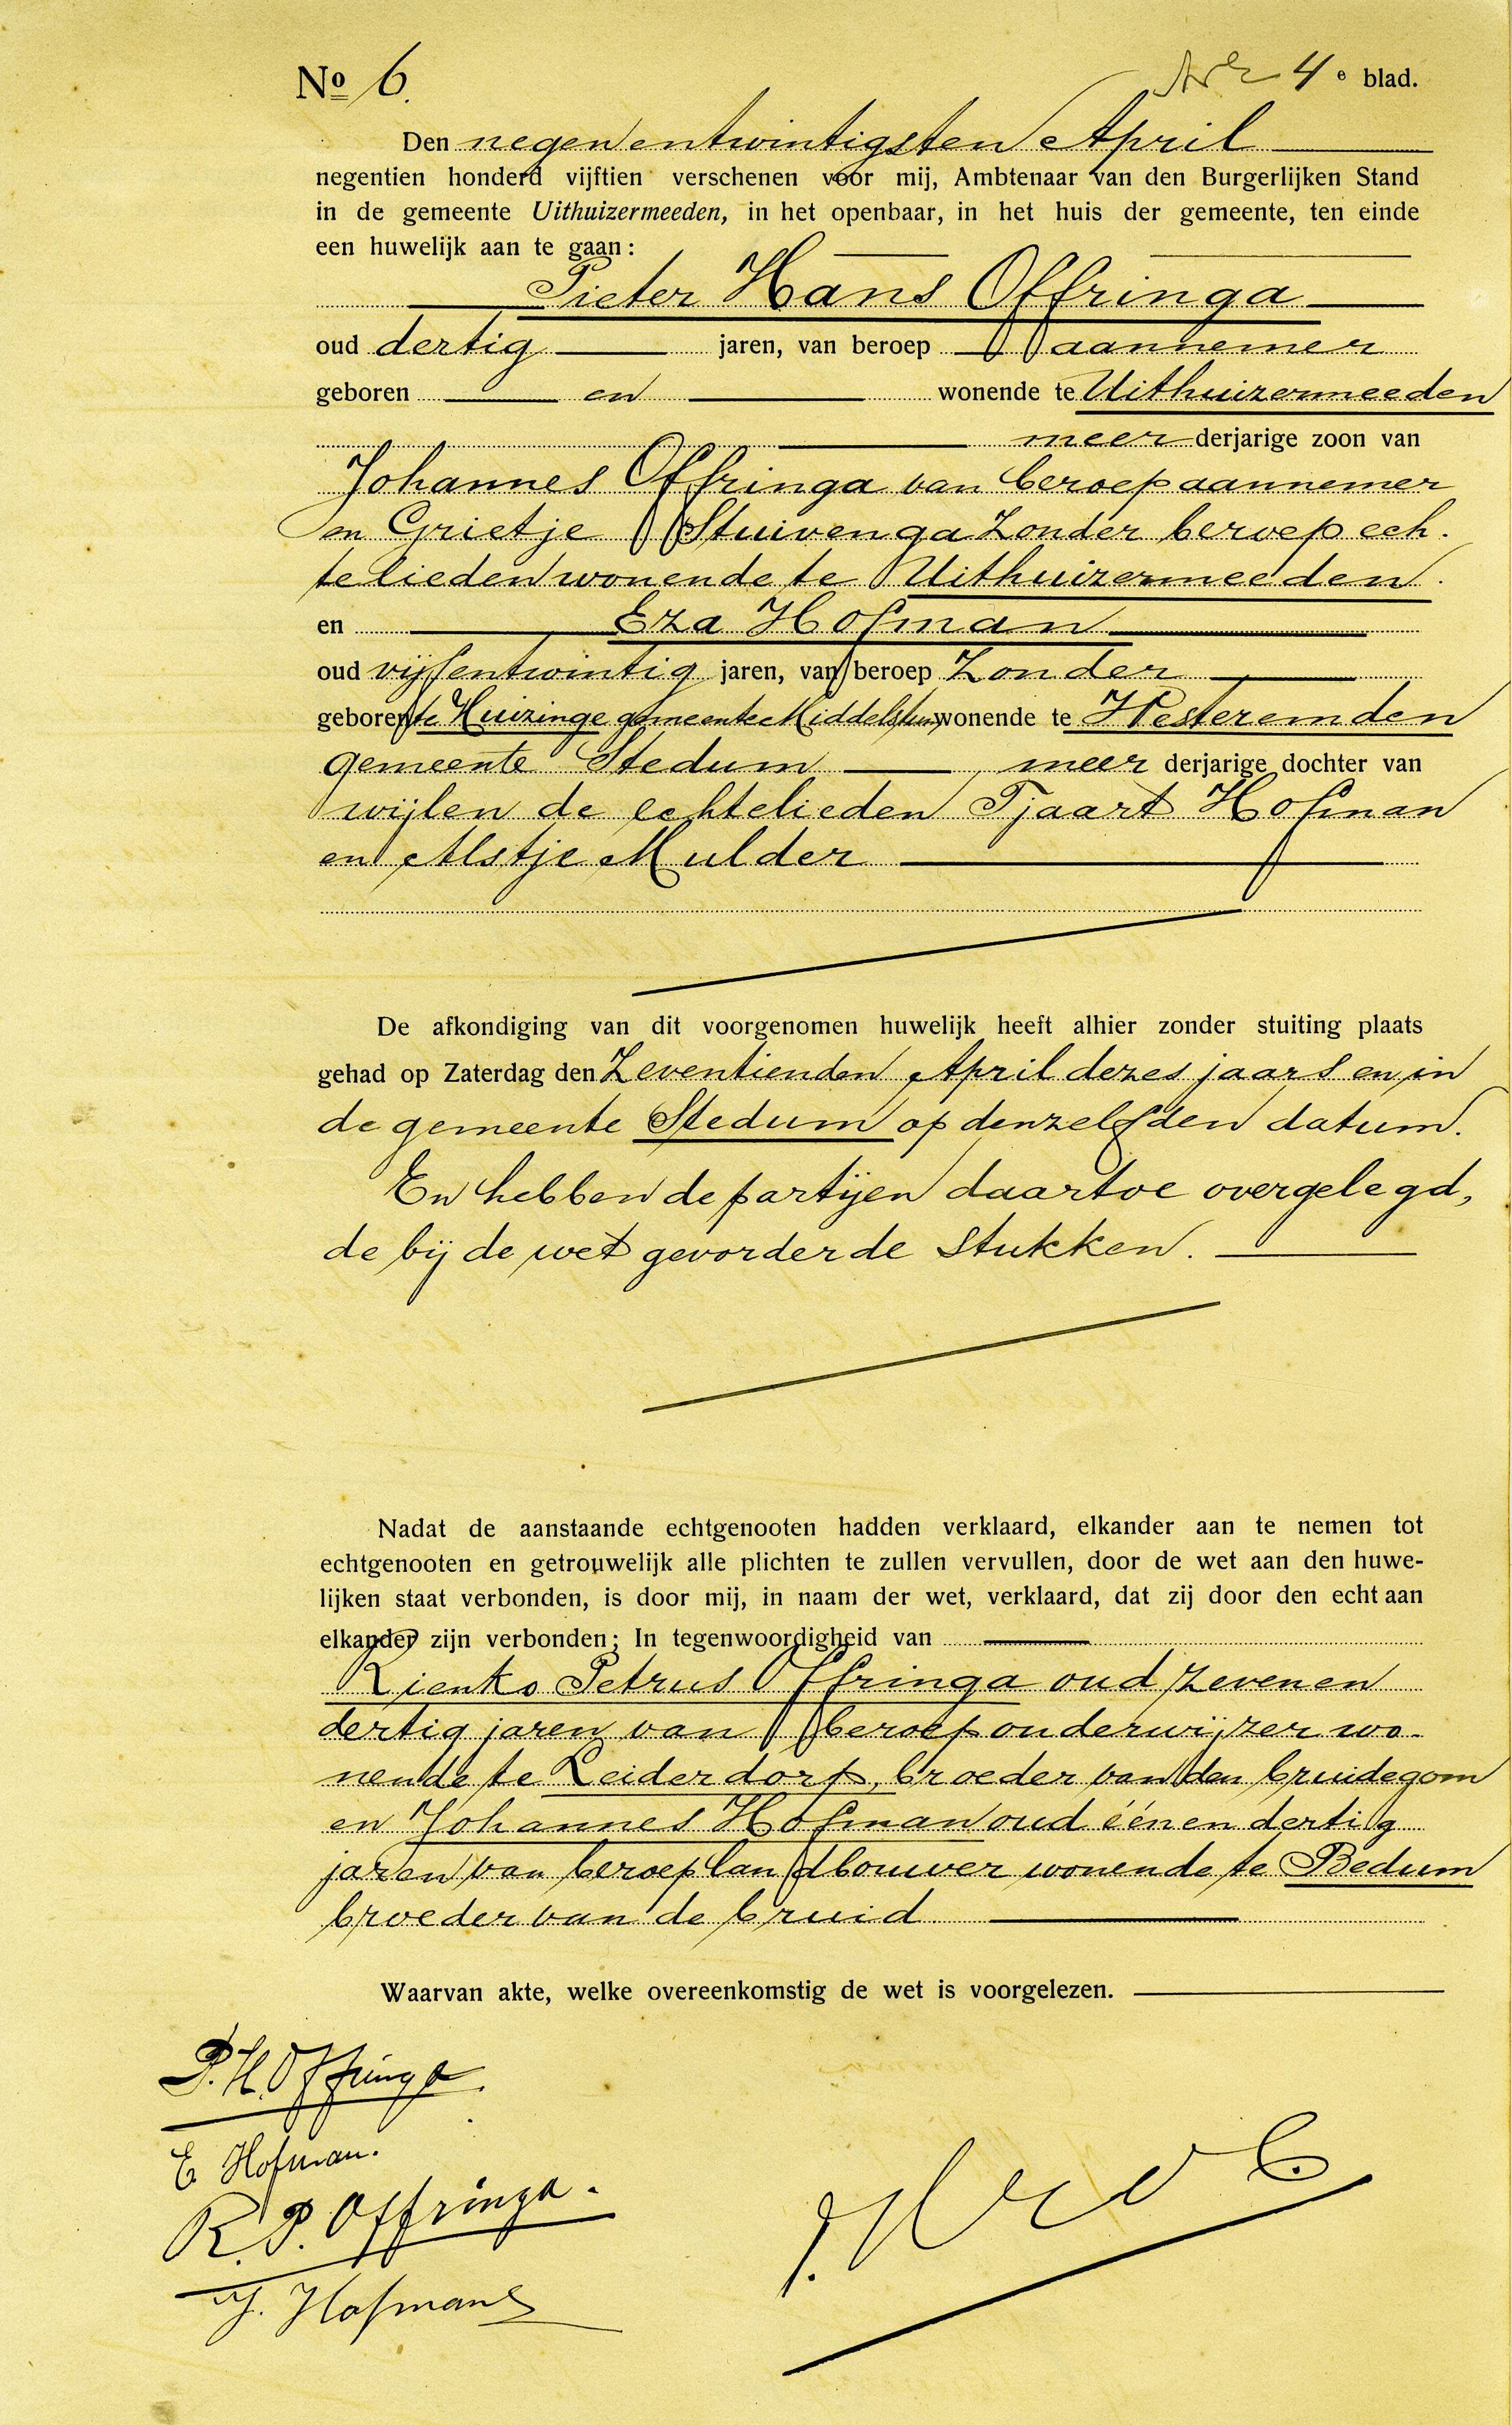 No 6. 4e blad.
Den negenentwintigsten April
negentien honderd vijftien verschenen voor mij, Ambtenaar van den Burgerlijken Stand
in de gemeente Uithuizermeeden, in het openbaar, in het huis der gemeente, ten einde
een huwelijk aan te gaan:
Pieter Hans Offringa
oud dertig jaren, van beroep aannemer
geboren en wonende te Uithuizermeeden
meerderjarige zoon van
Johannes Offringa van beroep aannemer
en Grietje Stuivenga zonder beroep ech.
telieden wonende te Uithuizermeeden.
en Eza Hofman
oud vijfentwintig jaren, van beroep Zonder
geboren te Huizinge gemeente Middelstum wonende te Westeremden
gemeente Stedum meer derjarige dochter van
wijlen de echtelieden Tjaart Hofman
en Alstje Mulder
De afkondiging van dit voorgenomen huwelijk heeft alhier zonder stuiting plaats
gehad op Zaterdag den Zeventienden April dezes jaars en in
de gemeente Stedum op denzelfden datum.
En hebben de partijen daartoe overgelegd,
de bij de wet gevorderde stukken.
Nadat de aanstaande echtgenooten hadden verklaard, elkander aan te nemen tot
echtgenooten en getrouwelijk alle plichten te zullen vervullen, door de wet aan den huwe-
lijken staat verbonden, is door mij, in naam der wet, verklaard, dat zij door den echt aan
elkander zijn verbonden; In tegenwoordigheid van
Rienko Petrus Offringa oud zevenen
dertig jaren van beroep onderwijzer wo-
nende te Leiderdorp, broeder van den bruidegom
en Johannes Hofman oud éénendertig
jaren van beroep landbouwer wonende te Bedum
broeder van de bruid
Waarvan akte, welke overeenkomstig de wet is voorgelezen.
P. H. Offringa.
E Hofman.
R. P. Offringa.
J. Hofman